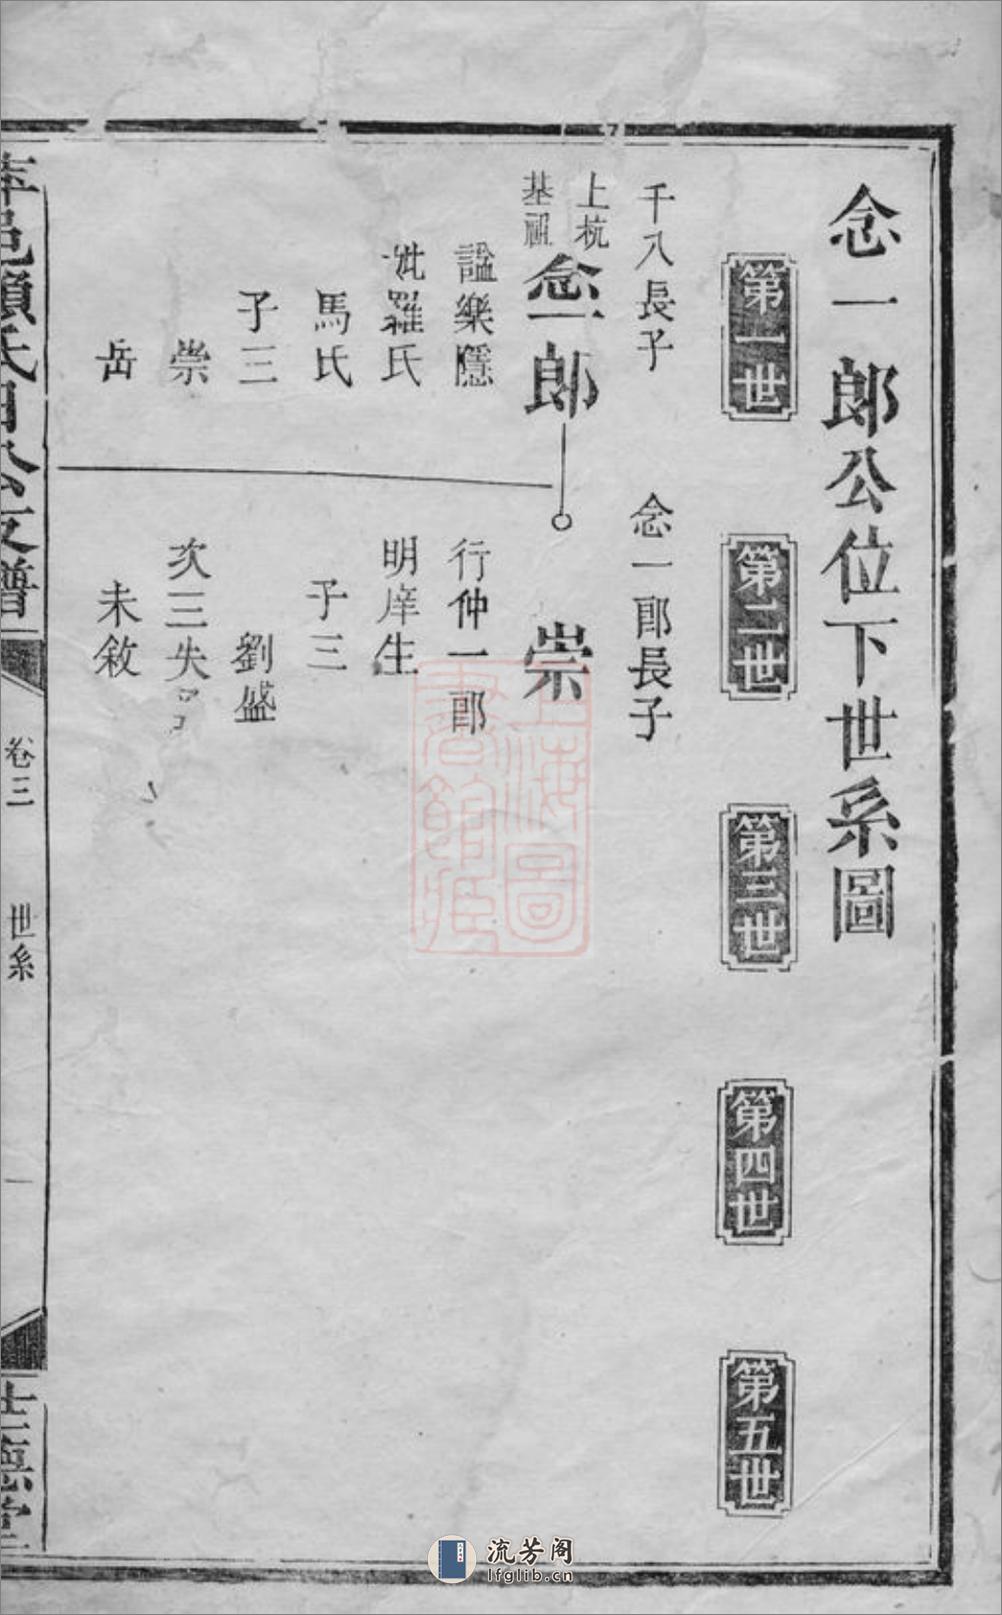 念一郎公位下世系圖
第一世
第二世
第三世
第四世
第五世
千八長子
上杭
基祖
念一郎
諡樂隱
妣羅氏
馬氏
子三
崇
岳
念一郎長子
崇
行仲一郎
明庠生
子三
劉盛
次三失
未敘
賴氏
公支譜
卷三
世系
一
上海圖書館藏
流芳阁
lfglib.cn